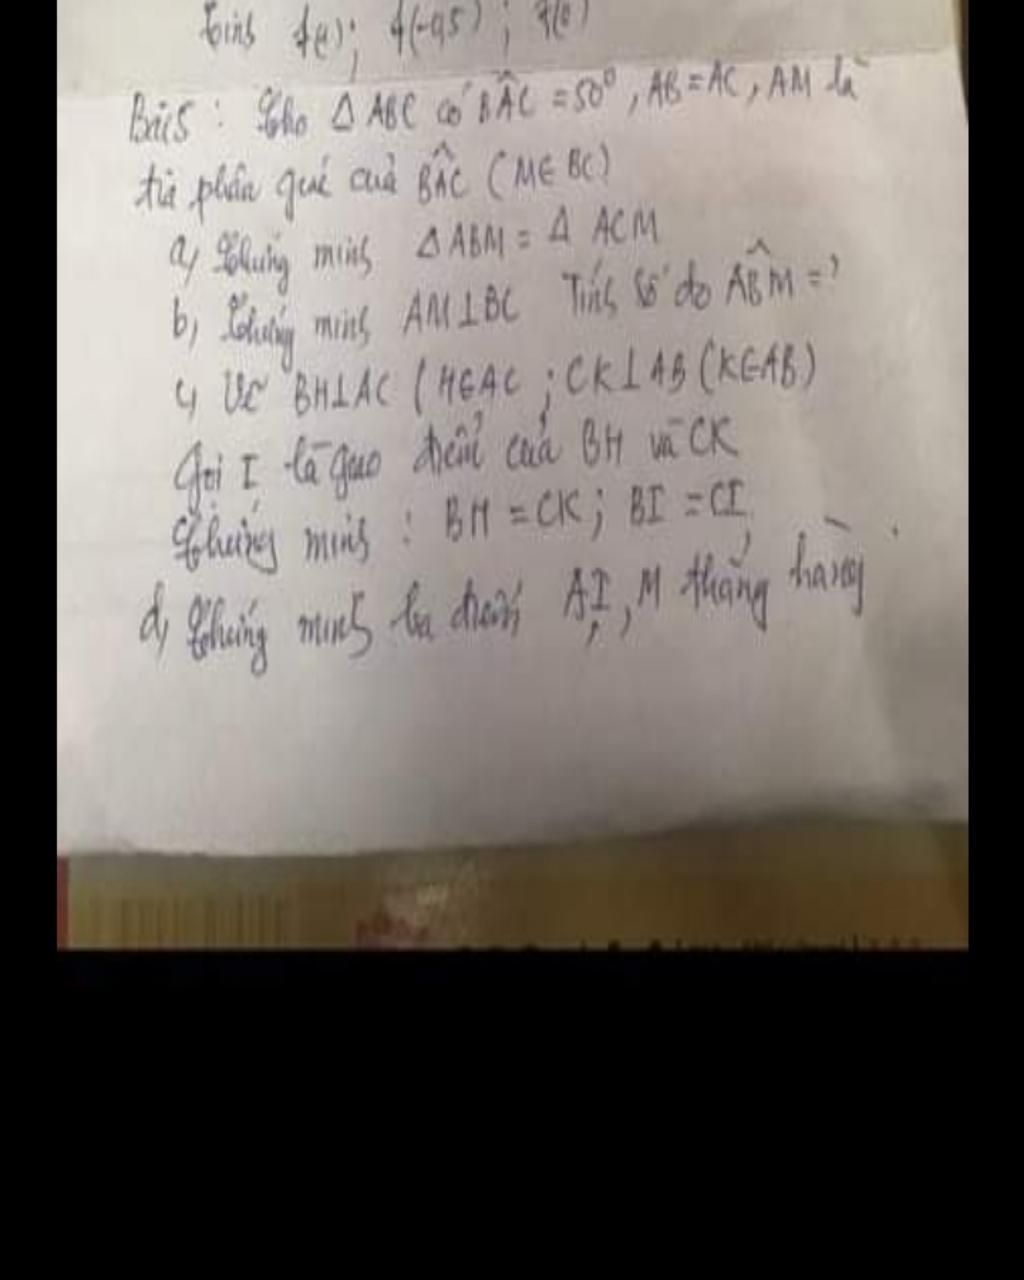 Tính f(1); f(-0,5);
Bài 5: Cho Δ ABC có BÂC = 50°, AB = AC, AM là
tia phân giác của BÂC (M∈ BC)
a, Chứng minh Δ ABM = Δ ACM
b, Chứng minh AM⊥BC Tính số đo AB̂M = ?
c, Vẽ BH⊥AC (H∈AC ; CK⊥AB (K∈AB)
Gọi I là giao điểm của BH và CK
Chứng minh : BH = CK; BI = CI
d, Chứng minh ba điểm A,I,M thẳng hàng